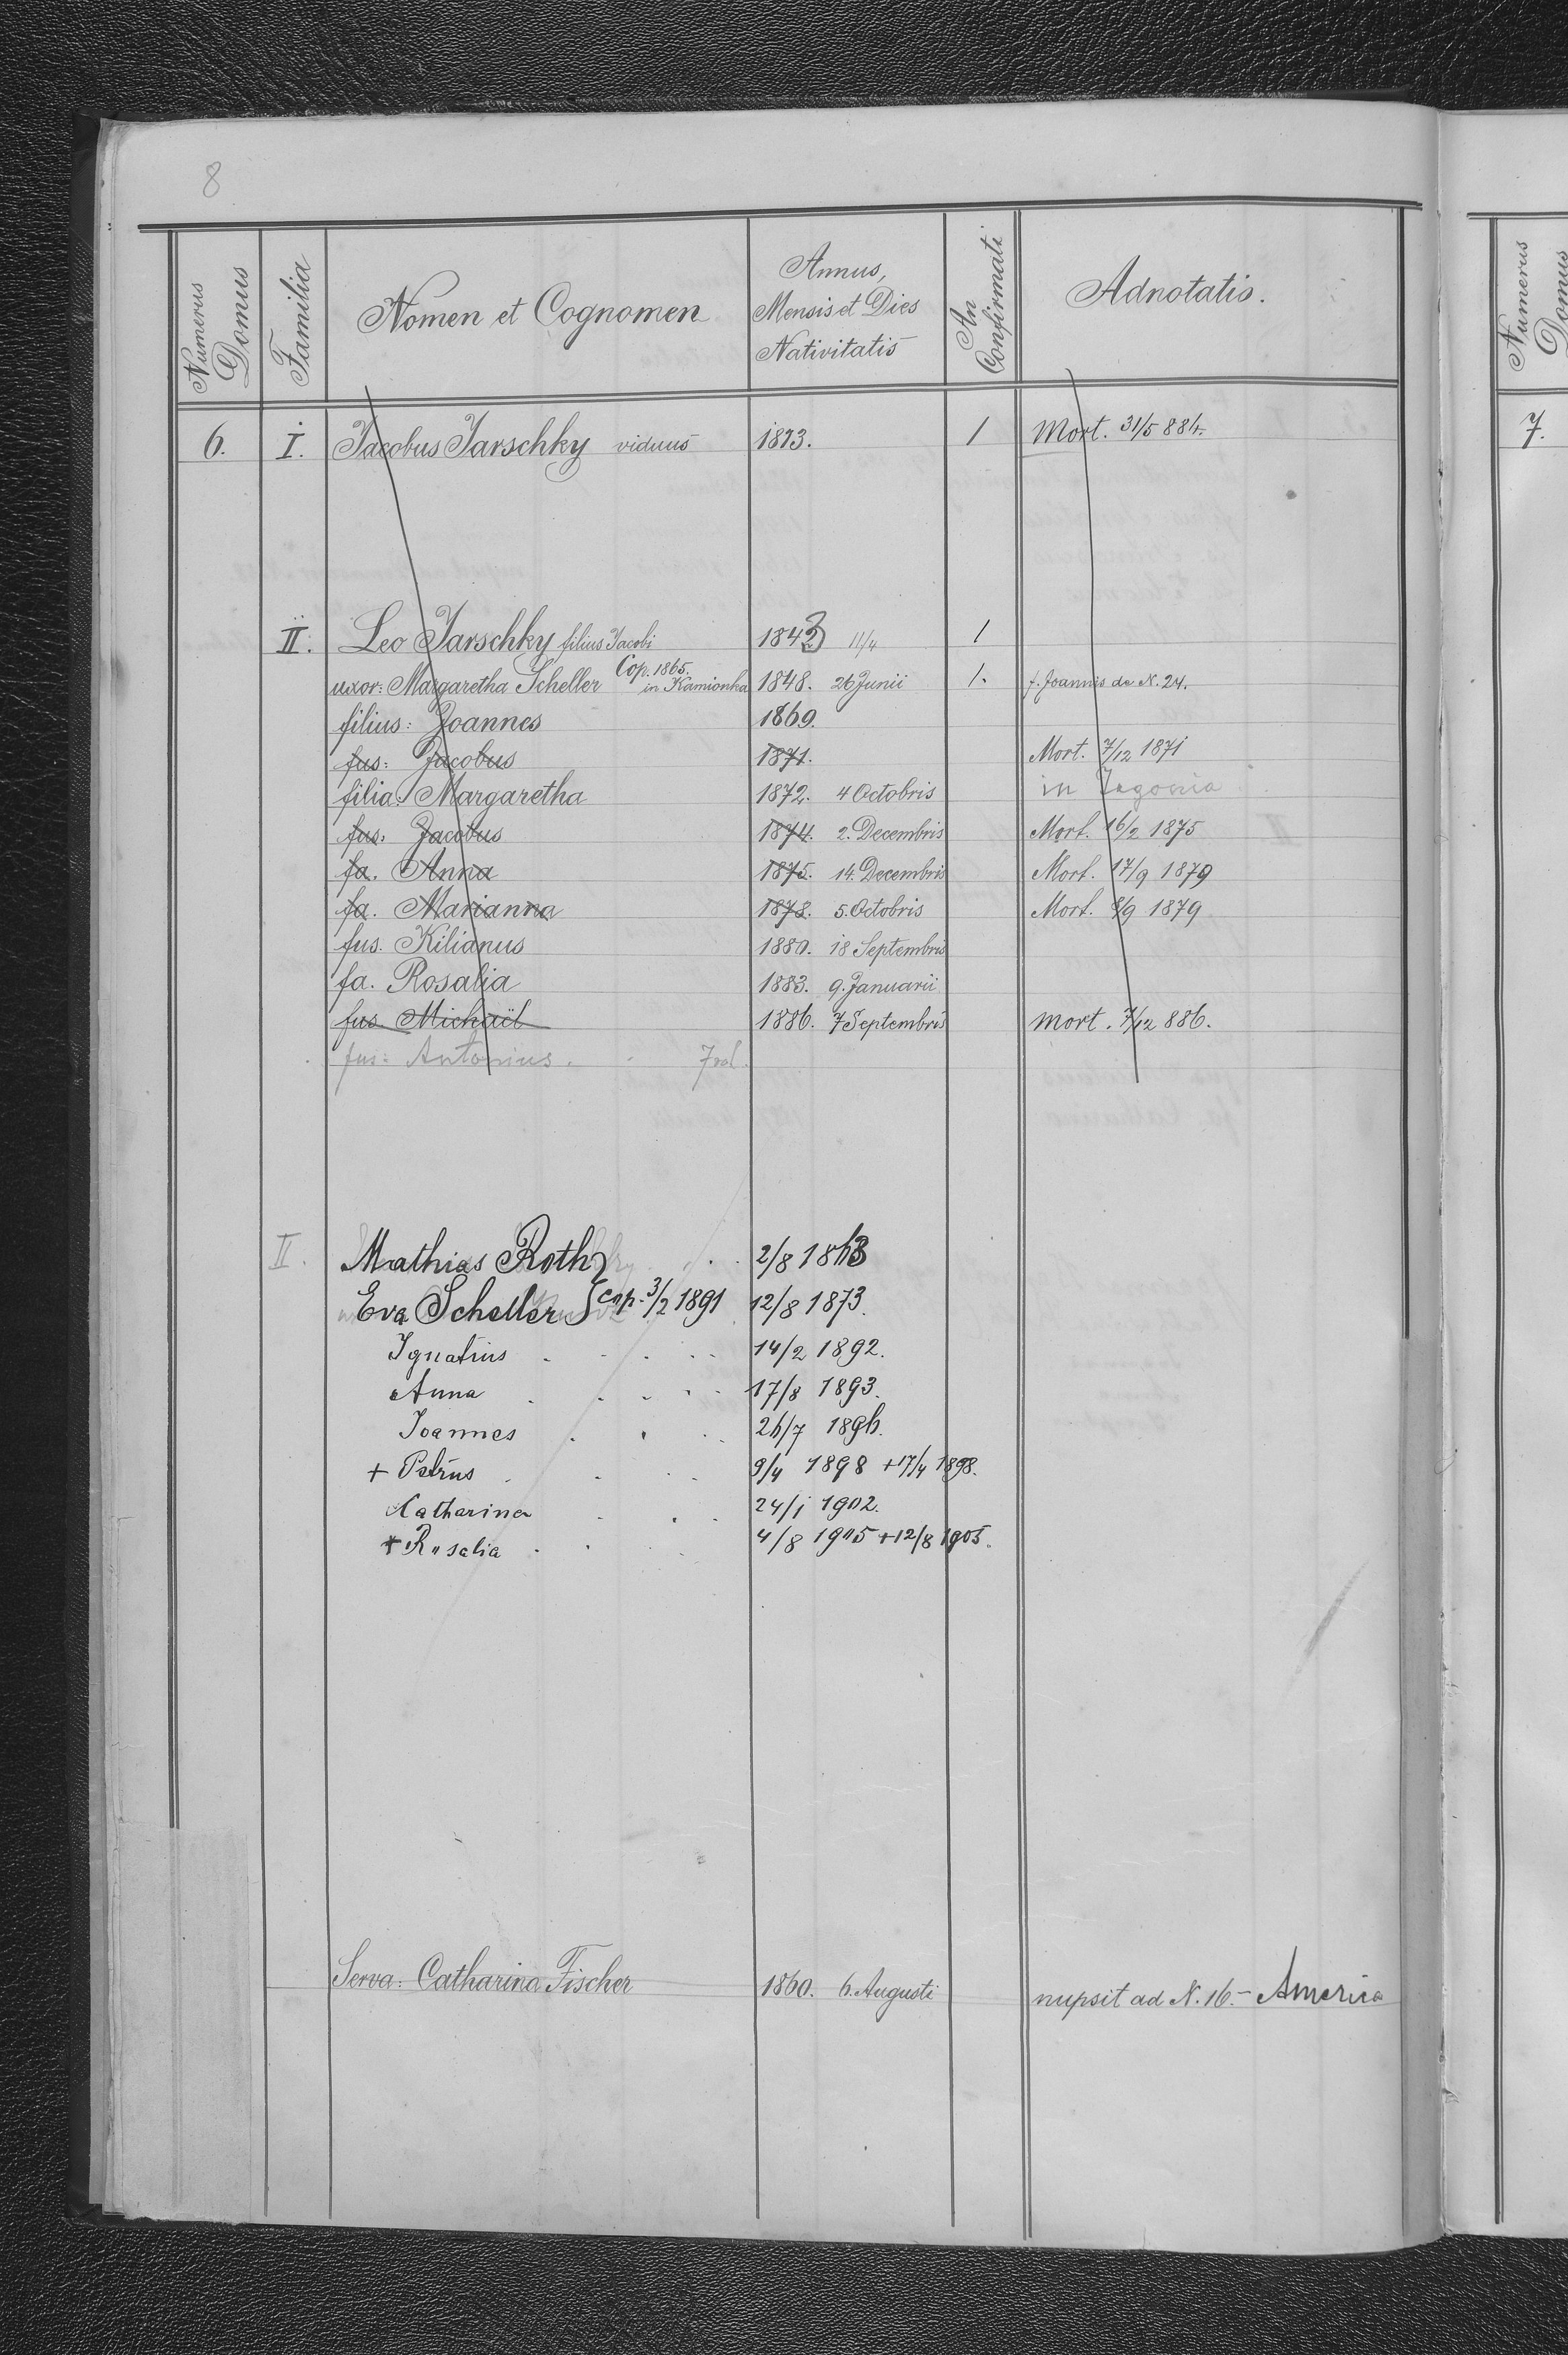 8
Numerus Domus
Familia
Nomen et Cognomen
Annus, Mensis et Dies Nativitatis
An Confirmati
Adnotatio.
Numerus Domus
6. I. Jacobus Jarschky viduus 1813. 1 Mort. 31/5 884.
7.
II. Leo Jarschky filius Jacobi 1843 11/4 1
uxor: Margaretha Scheller Cop. 1865. in Kamionka 1848. 26 Junii 1. f. Joannis de N. 24.
filius: Joannes 1869.
fus: Jacobus 1871. Mort. 7/12 1871
filia: Margaretha 1872. 4 Octobris in
fus: Jacobus 1874. 2. Decembris Mort. 16/2 1875
fa. Anna 1875. 14. Decembris Mort. 17/9 1879
fa. Marianna 1878. 5. Octobris Mort. 8/9 1879
fus. Kilianus 1880. 18 Septembris
fa. Rosalia 1883. 9. Januarii
fus. Michaël 1886. 7 Septembris mort. 7/12 886.
fus: Antonius.
II. Mathias Roth 2/8 1868
Eva Scheller cop. 3/2 1891 12/8 1873.
Ignatius 14/2 1892.
Anna 17/8 1893.
Joannes 26/7 1896.
+ Petrus 9/4 1898 +17/4 1898.
Katharina 24/1 1902.
+ Rosalia 4/8 1905 +12/8 1905.
Serva: Catharina Fischer 1860. 6. Augusti nupsit ad N. 16.- America